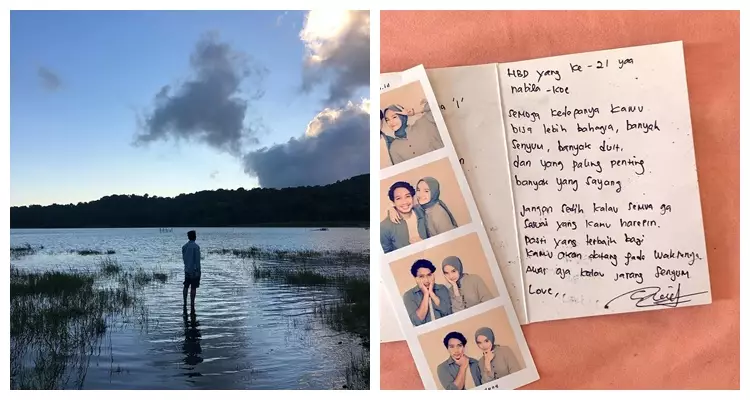 HBD yang ke - 21 yaa
nabila - koe
semoga kedepannya kamu
bisa lebih bahagia, banyak
senyum, banyak duit,
dan yang paling penting
banyak yang sayang
Jangan sedih kalau semua ga
sesuai yang kamu harepin.
Pasti yang terbaik bagi
kamu akan datang pada waktunya
Awas aja kalau jarang senyum
Love,